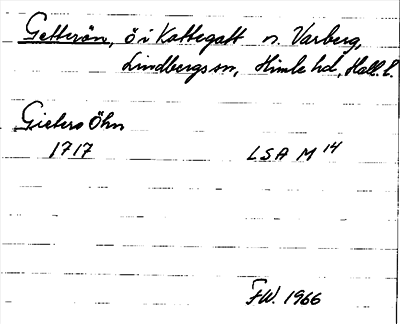 Getterön, ö i Kattegatt n. Varberg,
Lindbergs sn, Himle hd, Hall. l.
Gieters Öhn
1717 LSA M 14
F.W. 1966